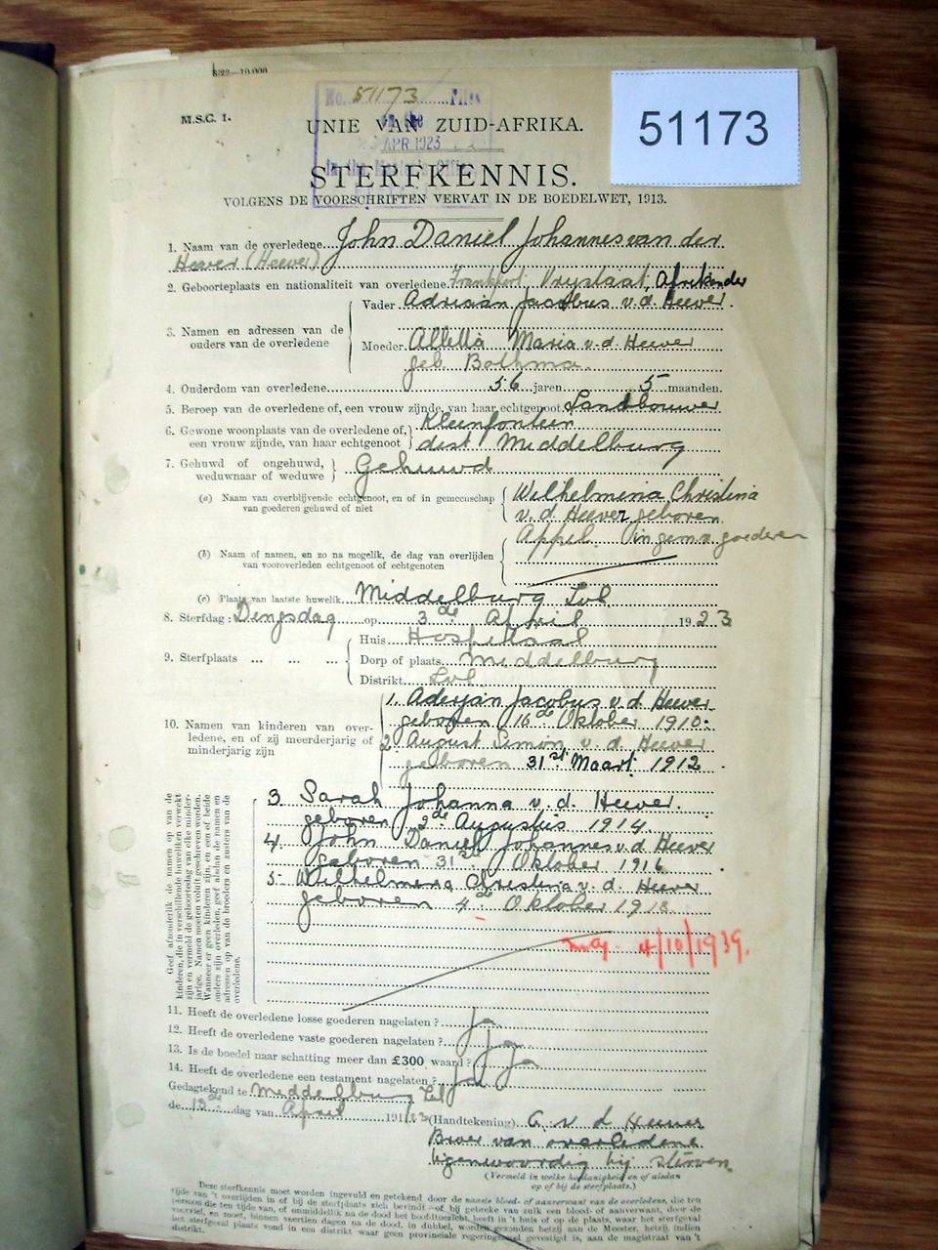 8/22—10,000
No. 51173 Filed
in the
APR 1923
In the Master's Office
51173
M.S.C. 1.
UNIE VAN ZUID-AFRIKA.
STERFKENNIS.
VOLGENS DE VOORSCHRIFTEN VERVAT IN DE BOEDELWET, 1913.
1. Naam van de overledene John Daniel Johannes van der
Heever (Heever)
2. Geboorteplaats en nationaliteit van overledene Frankfort Vrystaat Afrikander
3. Namen en adressen van de
ouders van de overledene
Vader Adriaan Jacobus v.d. Heever.
Moeder Alletta Maria v.d. Heever
geb. Bothma.
4. Ouderdom van overledene 56 jaren 5 maanden.
5. Beroep van de overledene of, een vrouw zijnde, van haar echtgenoot Landbouwer
6. Gewone woonplaats van de overledene of,
een vrouw zijnde, van haar echtgenoot
Kleinfontein
dist Middelburg
7. Gehuwd of ongehuwd,
weduwnaar of weduwe
Gehuwd
(a) Naam van overblijvende echtgenoot, en of in gemeenschap
van goederen gehuwd of niet
Wilhelmina Christina
v.d. Heever geboren
Appel. in gema goederen
(b) Naam of namen, en zo na mogelik, de dag van overlijden
van vooroverleden echtgenoot of echtgenoten
(c) Plaats van laatste huwelik Middelburg Tvl
8. Sterfdag: Dingsdag op 3de April 1923
9. Sterfplaats ... ... ...
Huis Hospitaal
Dorp of plaats Middelburg
Distrikt Tvl.
10. Namen van kinderen van over-
ledene, en of zij meerderjarig of
minderjarig zijn
1. Adriaan Jacobus v.d. Heever
geboren 16de Oktober 1910.
2 August Simon v.d. Heever
geboren 31ste Maart 1912
Geef afzonderlik de namen op van de
kinderen, die in verschillende huweliken verwekt
zijn en vermeld de geboortedag van elke minder-
jarige. Namen moeten voluit geschreven worden.
Wanneer er geen kinderen zijn, en een of beide
ouders zijn overleden, geef alsdan de namen en
adressen op van de broeders en zusters van de
overledene.
3. Sarah Johanna v.d. Heever.
geboren 2de Augustus 1914.
4. John Daniel Johannes v.d. Heever
geboren 31ste Oktober 1916
5. Wilhelmina Christina v.d. Heever
geboren 4de Oktober 1918
4/10/1939.
11. Heeft de overledene losse goederen nagelaten? Ja
12. Heeft de overledene vaste goederen nagelaten? Ja
13. Is de boedel naar schatting meer dan £300 waard? Ja
14. Heeft de overledene een testament nagelaten? Ja
Gedagtekend te Middelburg Tvl
de 13de dag van April 1923
(Handtekening) A v d Heever
Broer van overledene
tegenwoordig bij sterven
(Vermeld in welke hoedanigheid en of alsdan
op of bij de sterfplaats.)
Deze sterfkennis moet worden ingevuld en getekend door de naaste bloed- of aanverwant van de overledene, die ten
tijde van 't overlijden in of bij de sterfplaats zich bevindt of bij gebreke van zulk een bloed- of aanverwant, door de
persoon die ten tijde van, of onmiddellik na de dood het hoofdtoezicht heeft in 't huis of op de plaats, waar het sterfgeval
voorviel, en moet, binnen veertien dagen na de dood, in dubbel, worden gezonden hetzij aan de Meester, hetzij indien
het sterfgeval plaats vond in een distrikt waar geen provinciale regering gevestigd is, aan de magistraat van 't
distrikt.